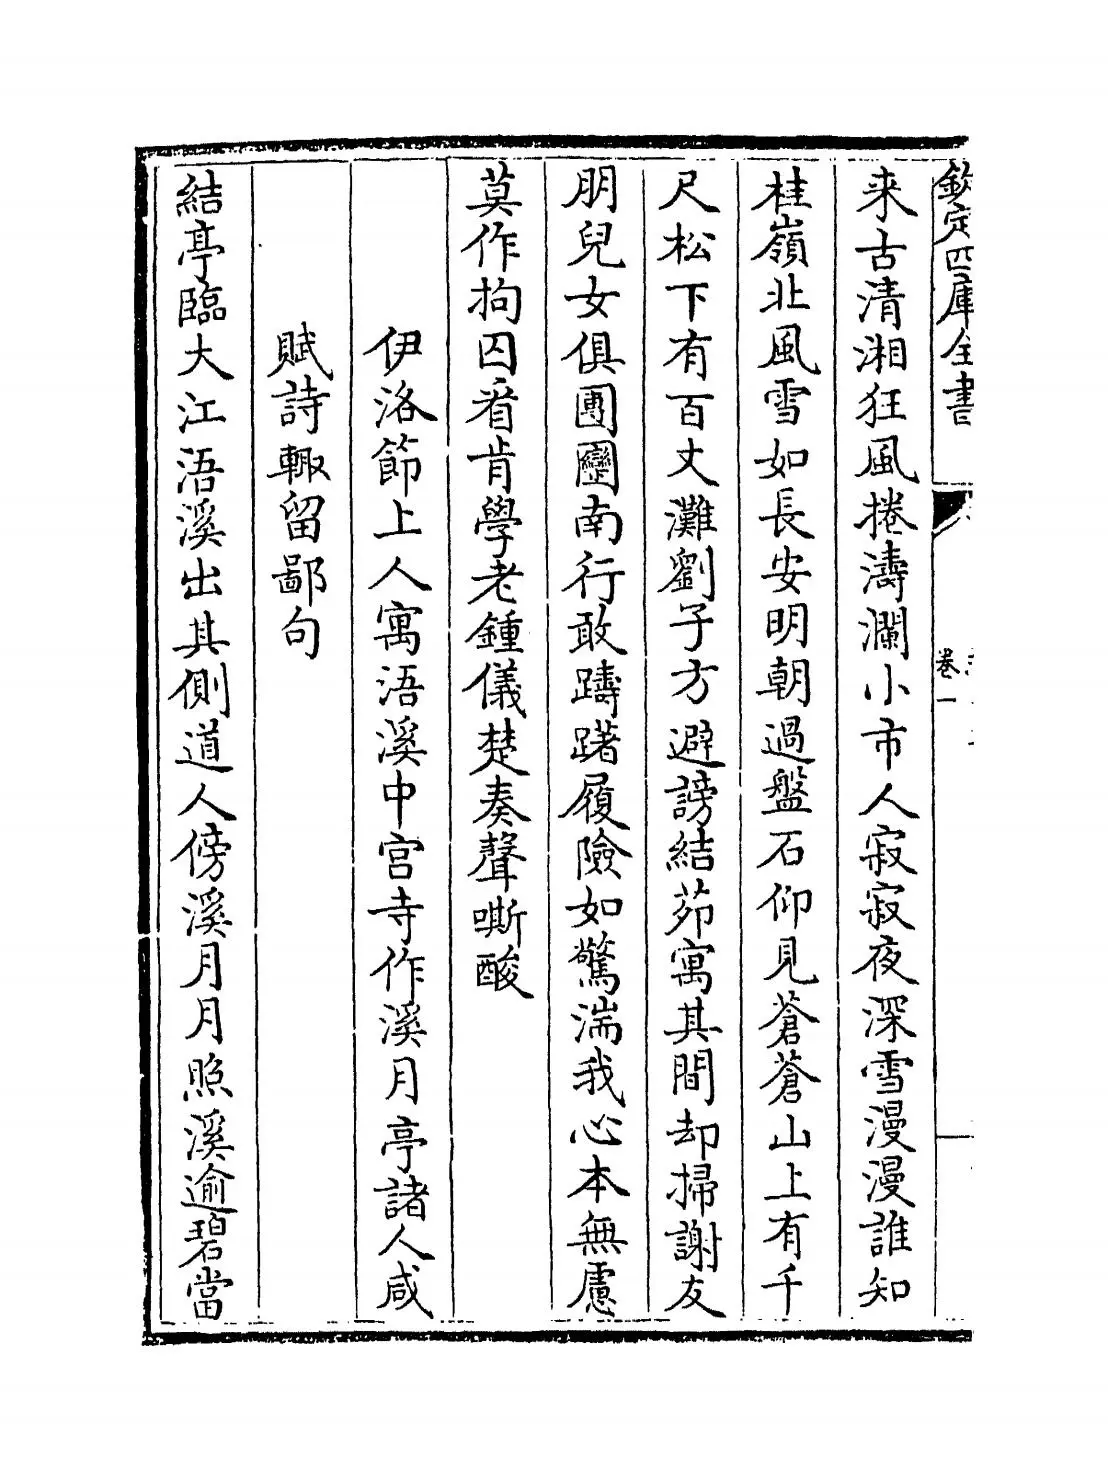 欽定四庫全書
卷一
来古清湘狂風捲濤瀾小市人寂寂夜深雪漫漫誰知
桂嶺北風雪如長安明朝過盤石仰見蒼蒼山上有千
尺松下有百丈灘劉子方避謗結茆寓其間却掃謝友
朋兒女俱團圞南行敢躊躇履險如驚湍我心本無慮
莫作拘囚看肯學老鍾儀楚奏聲嘶酸
伊洛節上人寓浯溪中宫寺作溪月亭諸人咸
賦詩輙留鄙句
結亭臨大江浯溪出其側道人傍溪月月照溪逾碧當